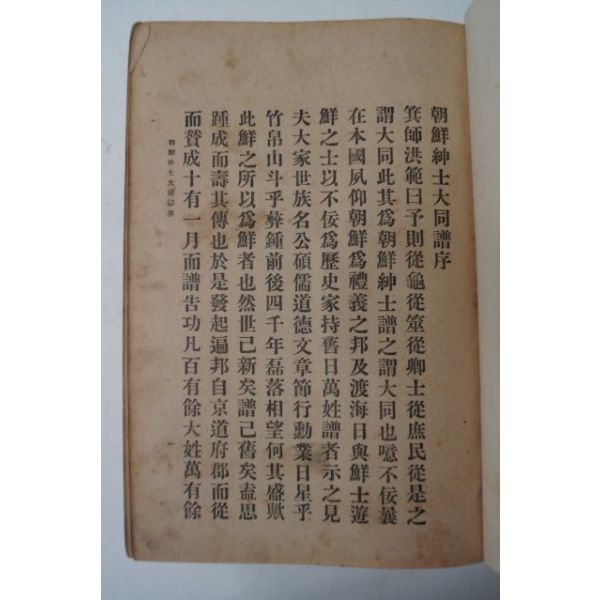 朝鮮紳士大同譜序
箕師洪範曰予則從龜從筮從卿士從庶民從是之
謂大同此其爲朝鮮紳士譜之謂大同也噫不佞義
在本國夙仰朝鮮爲禮義之邦及渡海日與鮮士遊
鮮之士以不佞爲歷史家持舊日萬姓譜者示之見
夫大家世族名公碩儒道德文章節行勳業日星乎
竹帛山斗乎彜鍾前後四千年磊落相望何其盛歟
此鮮之所以爲鮮者也然世已新矣譜已舊矣盍思
踵成而壽其傳也於是發起遍邦自京道府郡而從
而贊成十有一月而譜告功凡百有餘大姓萬有餘
朝鮮紳士大同譜序
一